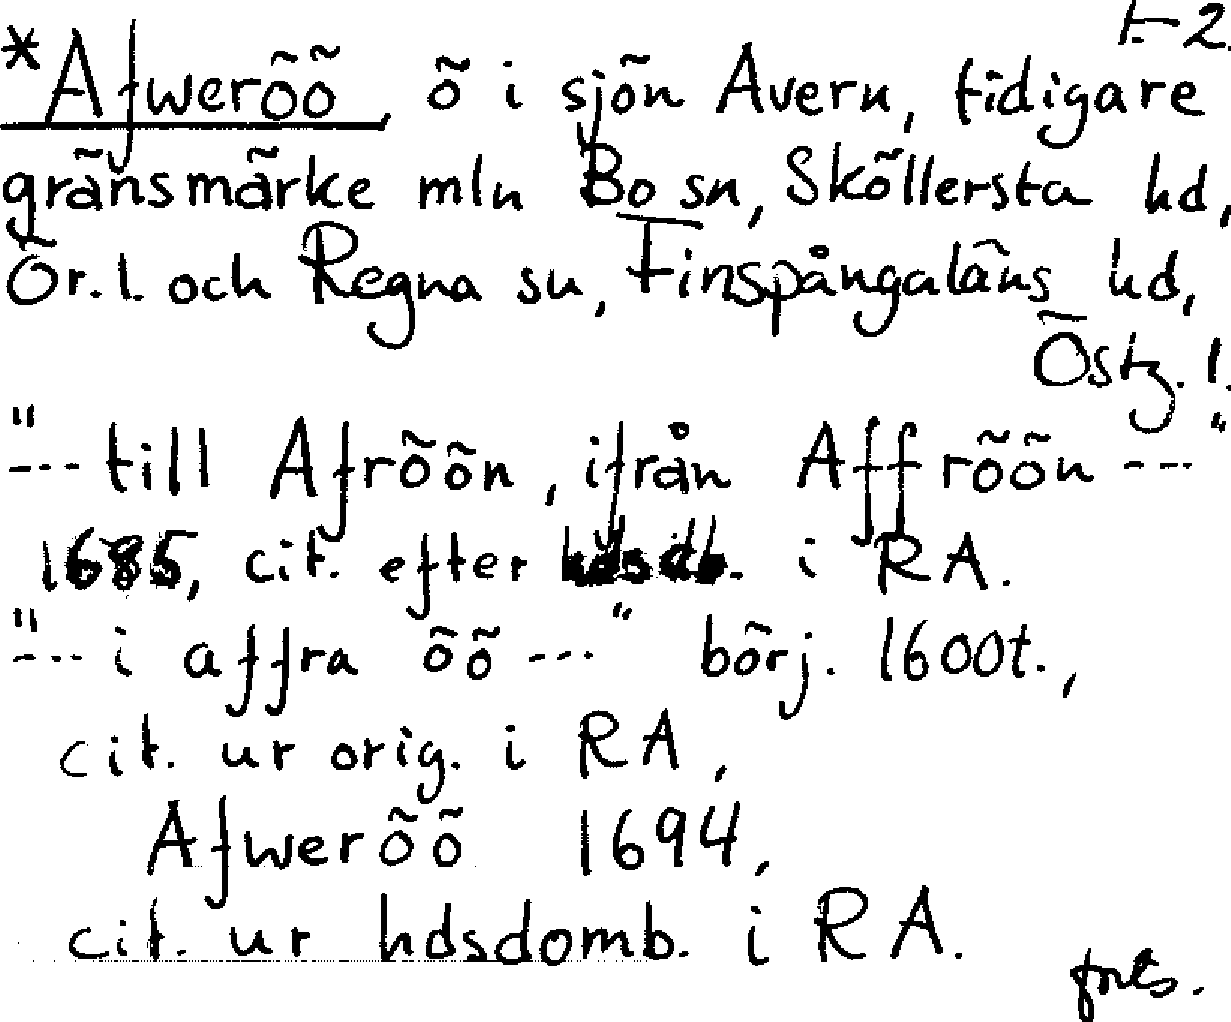 1-2.
*Afweröö, ö i sjön Avern, tidigare
gränsmärke mln Bo sn, Sköllersta hd,
Ör. l. och Regna sn, Finspångaläns hd,
Östg. l.
"--- till Afröön, ifrån Afföön ---"
1685, cit. efter hdsdb. i RA.
"--- i affra öö ---" börj. 1600t.,
cit. ur orig. i RA,
Afweröö 1694,
cit. ur hdsdomb. i RA.
forts.